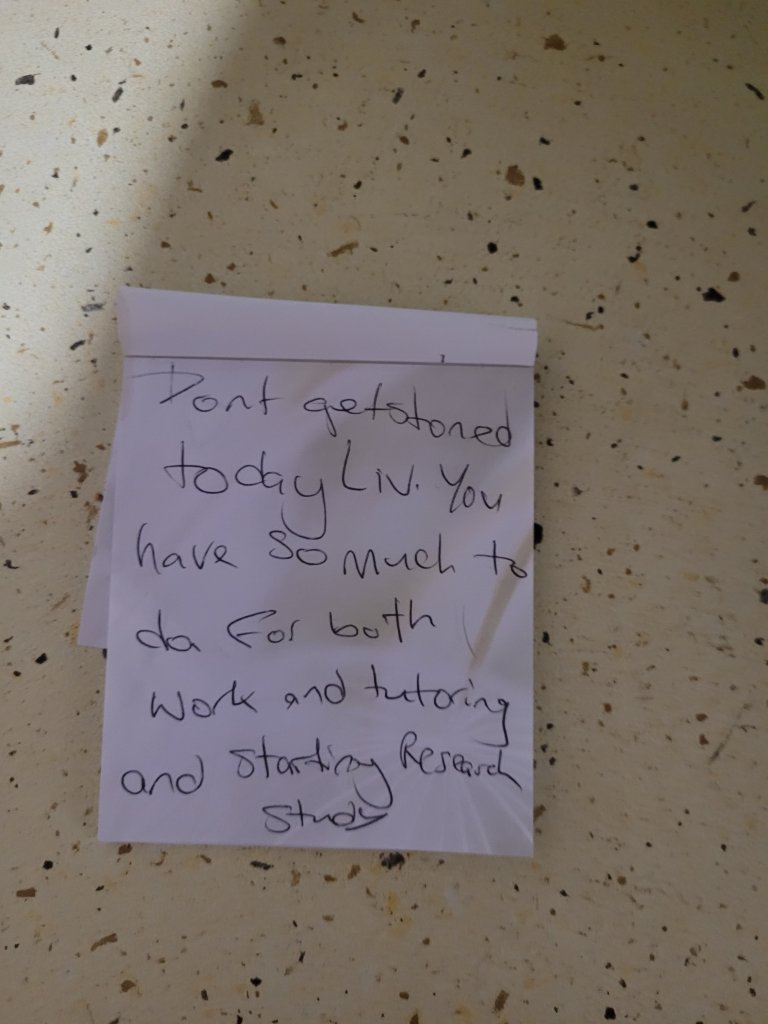 Dont get stoned
today Liv. You
have so much to
do for both
work and tutoring
and starting Research
study